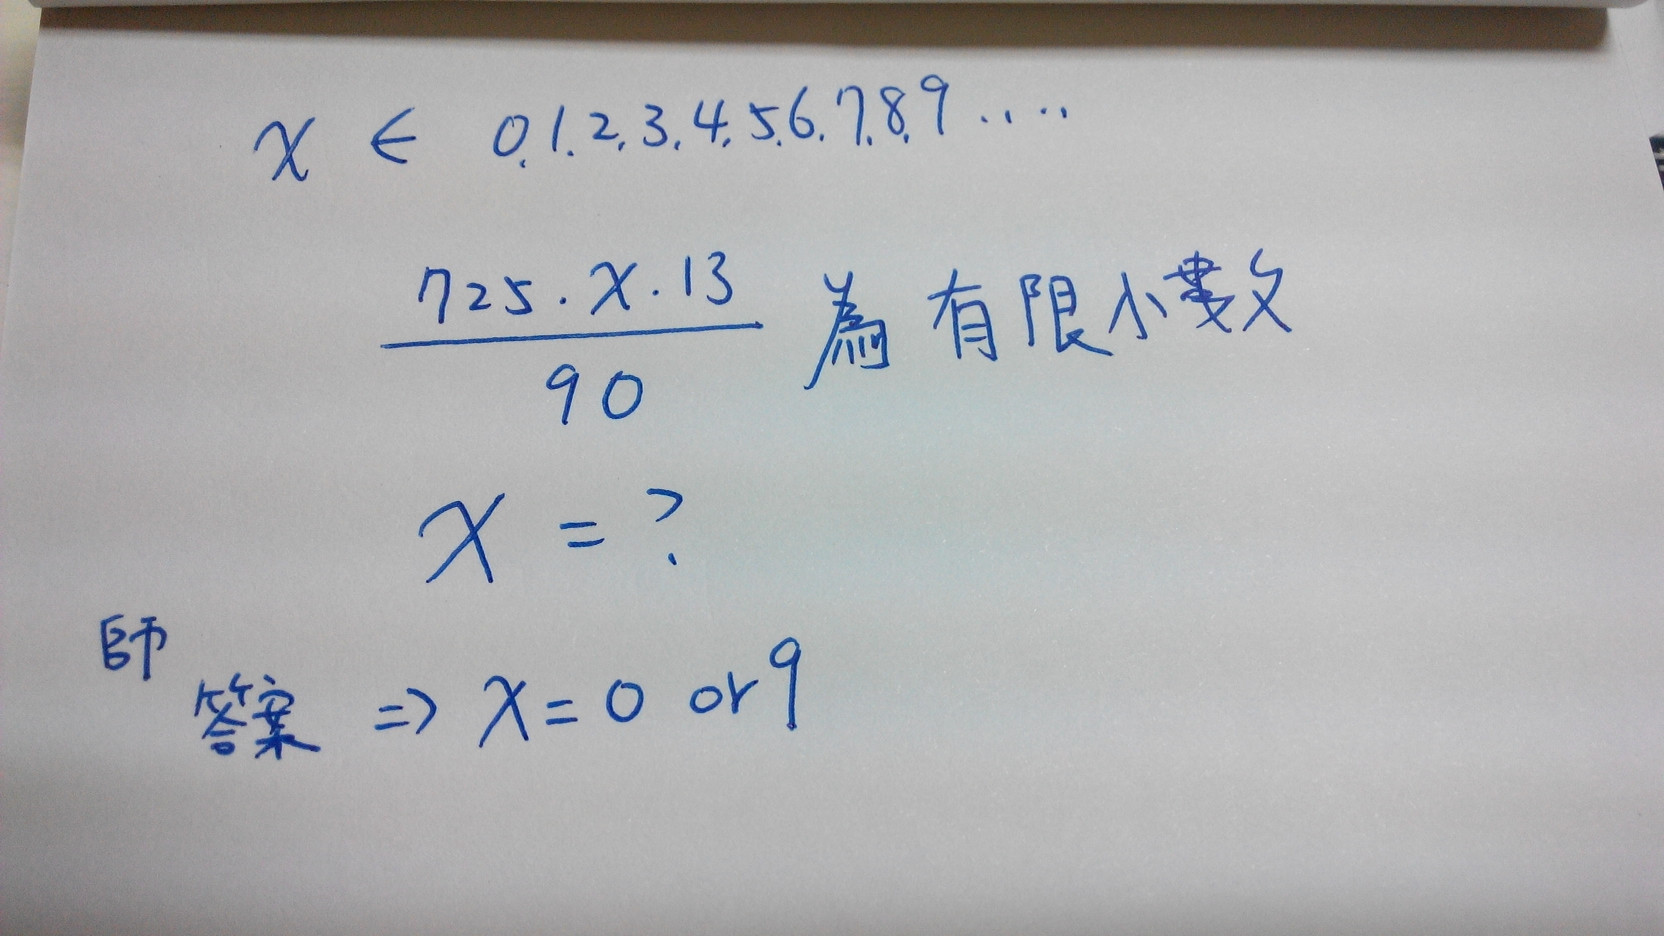 x ∈ 0.1.2.3.4.5.6.7.8.9 ....
725.x.13
90
為有限小數
x = ?
師
答案 => x = 0 or 9